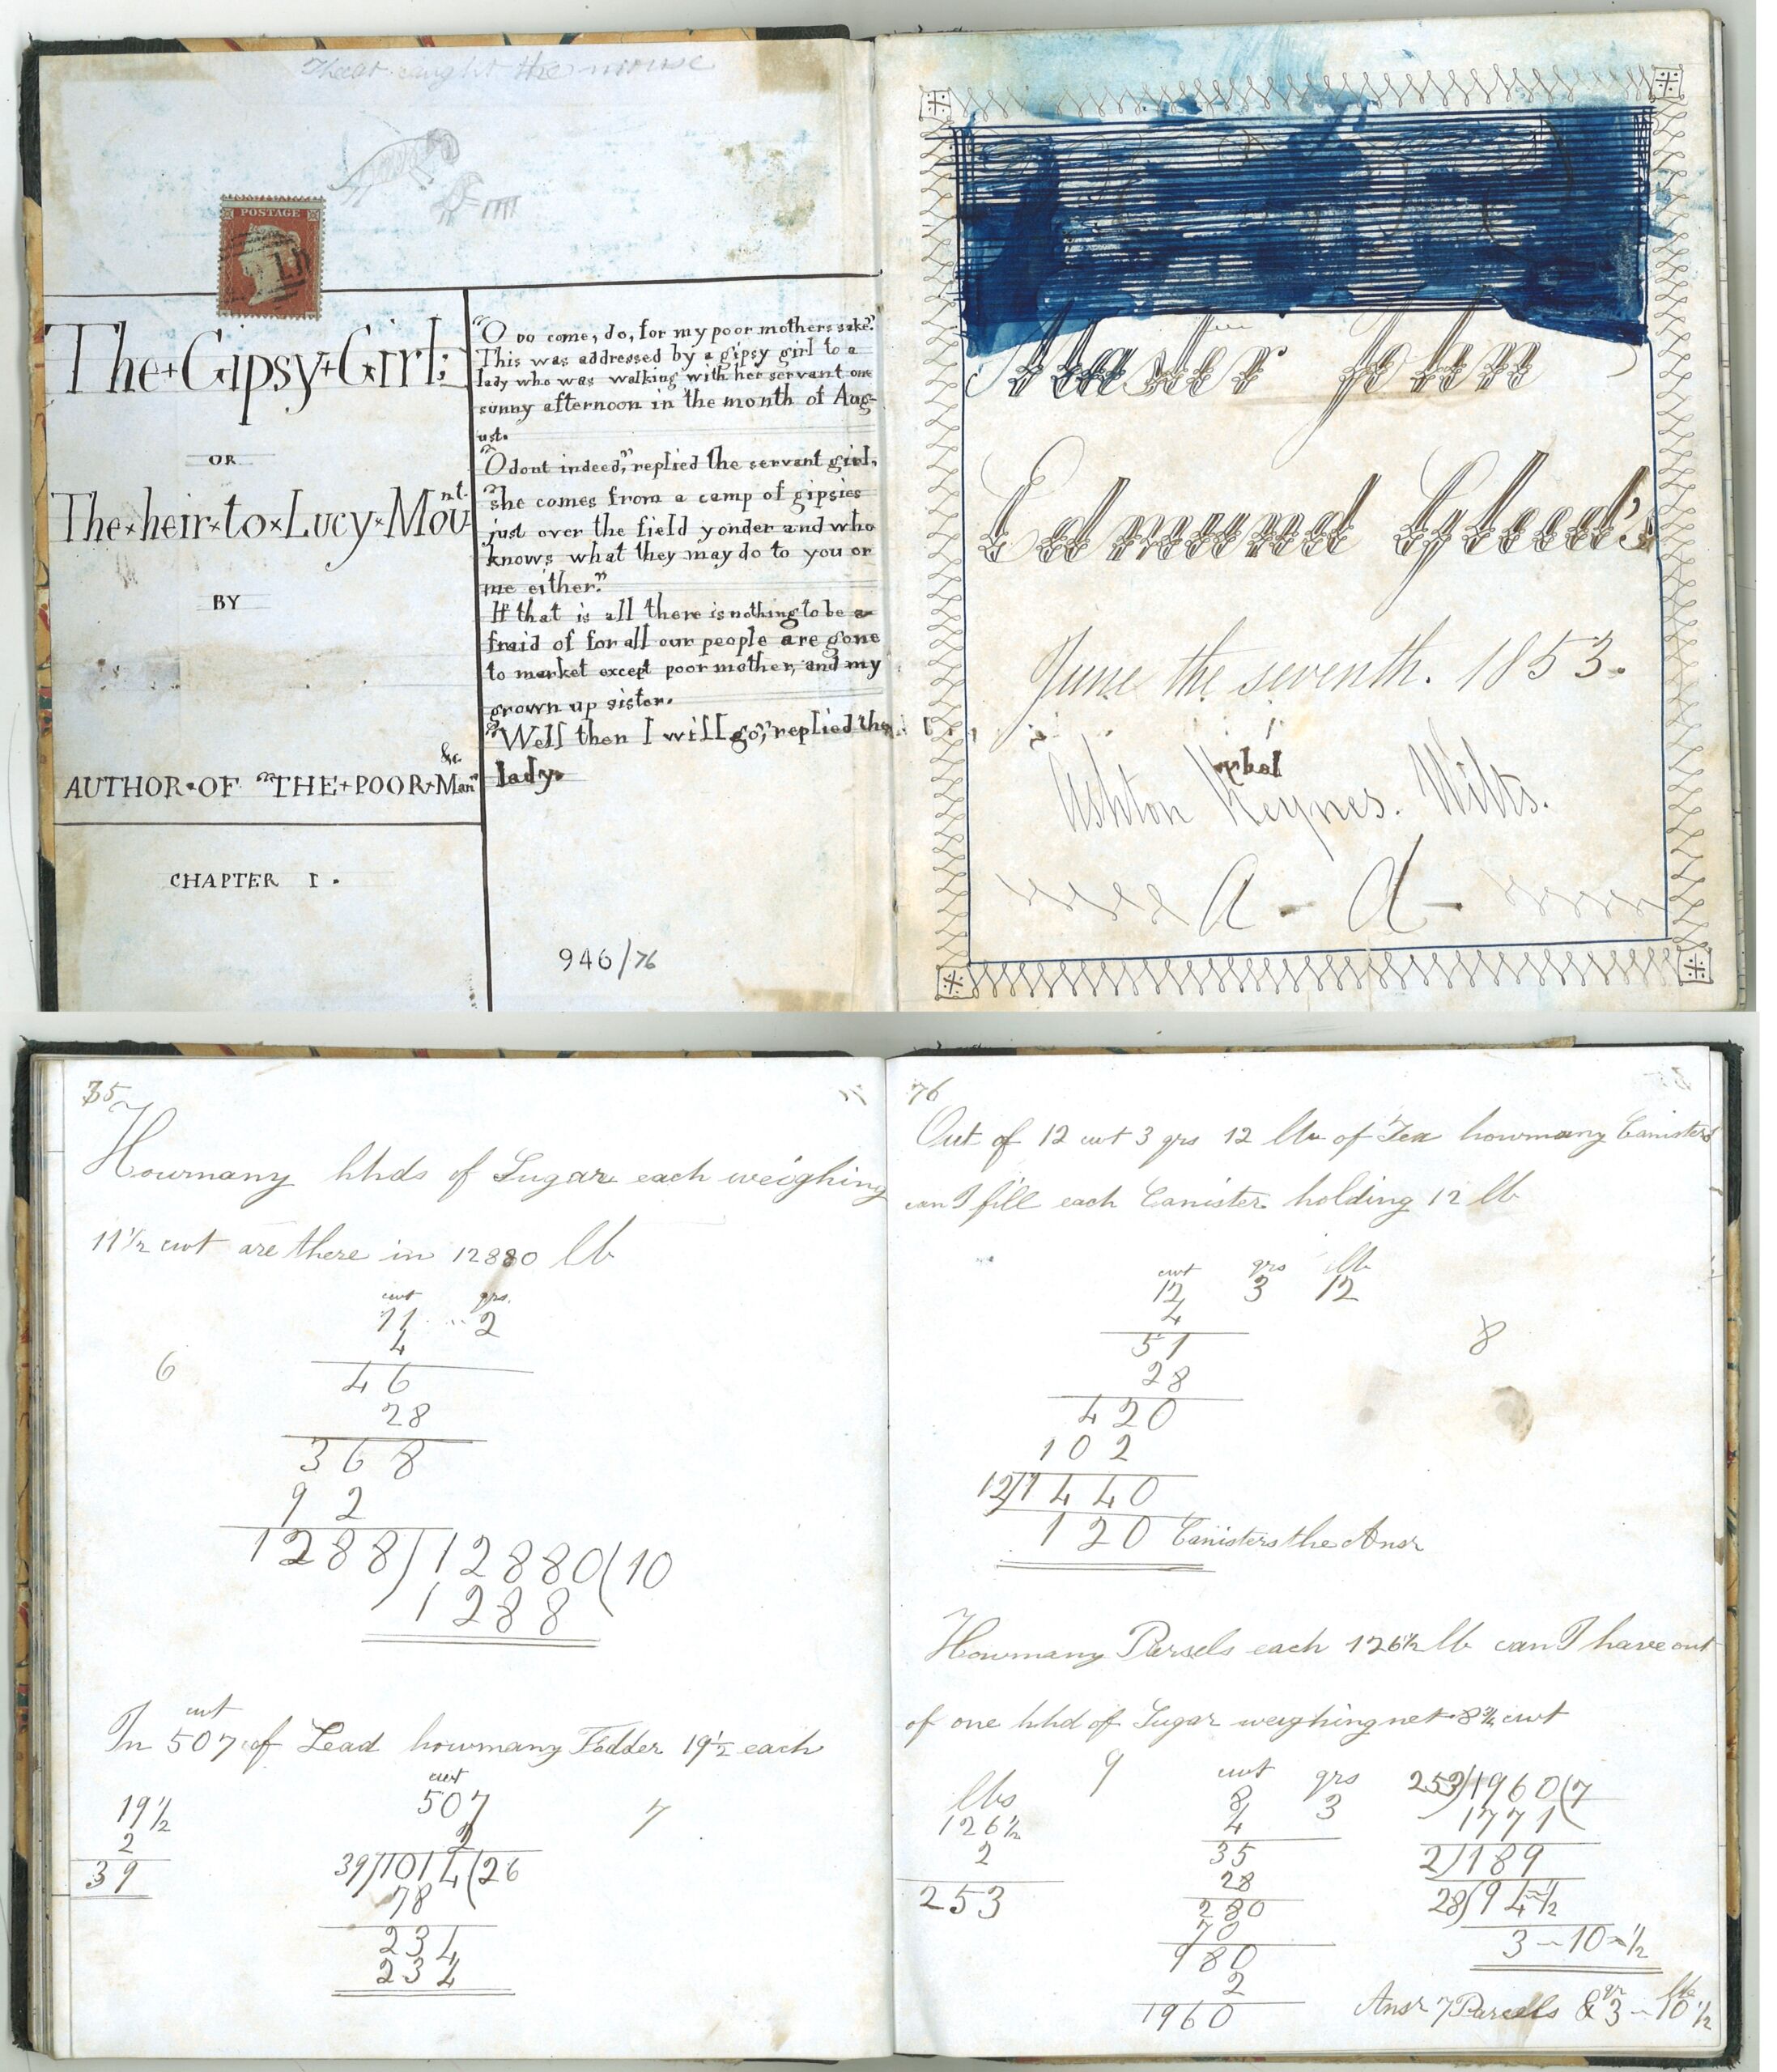 The cat caught the mouse
POSTAGE
The+Gipsy+Girl;
OR
The×heir×to×Lucy×Mount
BY
&c
AUTHOR•OF "THE+POOR+Man"
CHAPTER I.
"O do come, do, for my poor mothers sake."
This was addressed by a gipsy girl to a
lady who was walking with her servant one
sunny afternoon in the month of Aug-
ust.
"O dont indeed," replied the servant girl,
"she comes from a camp of gipsies
just over the field yonder and who
knows what they may do to you or
me either."
If that is all there is nothing to be a-
fraid of for all our people are gone
to market except poor mother, and my
grown up sister.
"Well then I will go," replied the
lady.
946/76
Master John
Edmund Gleed's
June the seventh. 1853.
Ashton Keynes. Wilts.
A - d -
35
Howmany hhds of Sugar each weighing
11 1/2 cwt are there in 12880 lb
cwt qrs.
11 .. 2
4
6
46
28
368
92
1288)12880(10
1288
cwt
In 507 of Lead howmany Fodder 19 1/2 each
cwt
19 1/2 507 7
2 2
39 39)1014(26
78
234
234
76
Out of 12 cwt 3 qrs 12 lb of Tea howmany Canisters
can I fill each Canister holding 12 lb
cwt qrs lb
12 3 12
4
51 8
28
420
102
12)1440
120 Canisters the Ansr
Howmany Parsels each 126 1/2 lb can I have out
of one hhd of Sugar weighing net 8 3/4 cwt
9
lbs
126 1/2
2
253
cwt qrs
8 3
4
35
28
280
70
980
2
1960
253)1960(7
1771
2)189
28)94-1/2
3-10-1/2
qr lb
Ansr 7 Parcells & 3-10 1/2